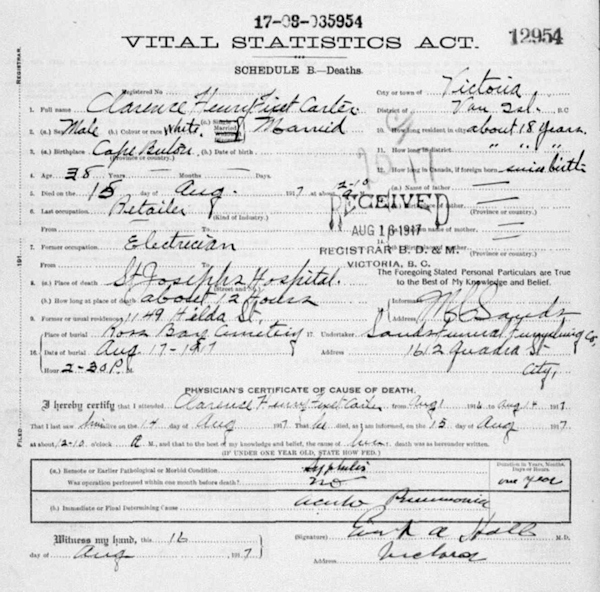 17-08-035954
VITAL STATISTICS ACT.
12954
SCHEDULE B.—Deaths.
REGISTRAR.
Registered No
1. Full name Clarence Henry Carter
2. (a.) Sex Male (b.) Colour or race White Married Married
3. (a.) Birthplace Cape Breton (b.) Date of birth
(Province or country)
4. Age 38 Years Months Days.
5. Died on the 15 day of Aug. 1917 at about 2-10
6. Last occupation Retailer (Kind of Industry)
From To
7. Former occupation Electrician
From To
8. (a.) Place of death St Josephs Hospital.
(Street and No.)
(b.) How long at place of death about 12 hours
9. Former or usual residence 1149 Hilda St.
Place of burial Ross Bay Cemetery
16. Date of burial Aug 17-1917
Hour 2-30 P.M.
City or town of Victoria
District of Van Isl. B.C
10. How long resident in city about 18 years.
11. How long in district " " "
12. How long in Canada, if foreign born since birth
13. (a.) Name of father
(Province or country)
of mother
(Province or country)
RECEIVED
AUG 16 1917
REGISTRAR B. D. & M.
VICTORIA, B. C.
The Foregoing Stated Personal Particulars are True
to the Best of My Knowledge and Belief.
Informant Sands
Address
17. Undertaker Sands Funeral Furnishing Co.
Address 1612 Quadra St
City,
191
FILED
PHYSICIAN'S CERTIFICATE OF CAUSE OF DEATH.
I hereby certify that I attended Clarence Henry Carter from Aug 1 1916 to Aug 14 1917
That I last saw him alive on the 14 day of Aug 1917 That he died, as I am informed, on the 15 day of Aug 1917
at about 12-10 o'clock A M., and that to the best of my knowledge and belief, the cause of his death was as hereunder written.
(IF UNDER ONE YEAR OLD, STATE HOW FED.)
(a.) Remote or Earlier Pathological or Morbid Condition Syphilis
Was operation performed within one month before death? no
Duration in Years, Months, Days or Hours.
one year
(b.) Immediate or Final Determining Cause acute Pneumonia
Witness my hand, this 16
day of Aug 1917
(Signature) A Hall M.D.
Address Victoria